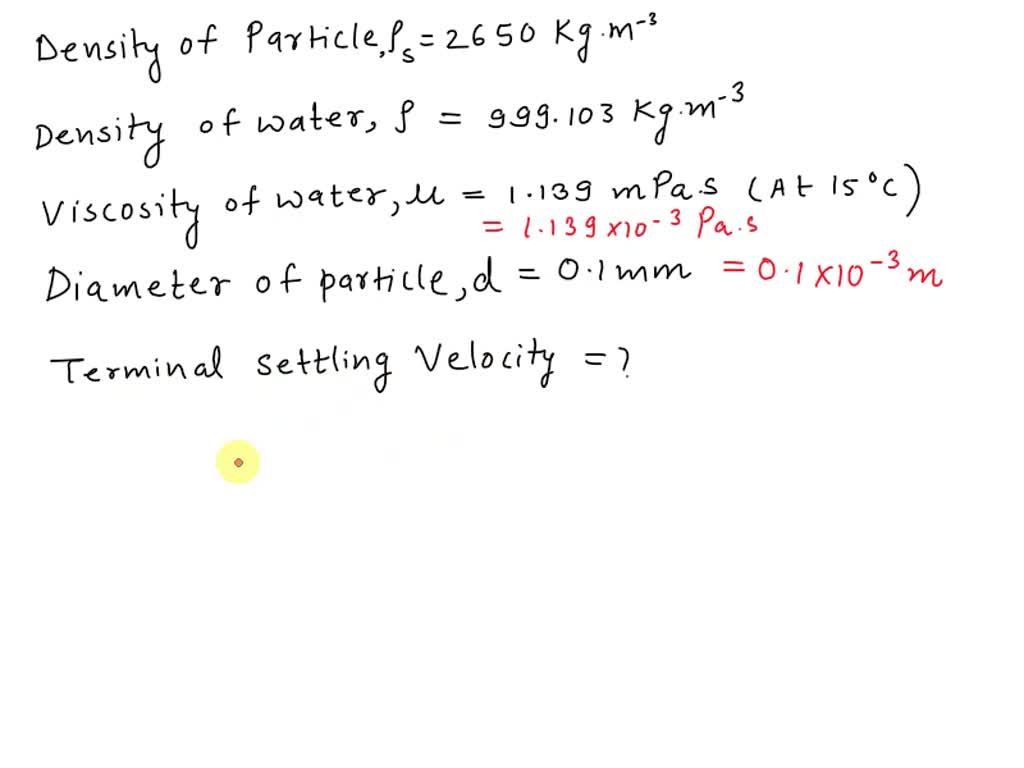 Density of Particle, ρs = 2650 Kg.m⁻³
Density of water, ρ = 999.103 Kg.m⁻³
Viscosity of water, μ = 1.139 mPa.s (At 15°C)
= 1.139 ×10⁻³ Pa.s
Diameter of particle, d = 0.1 mm = 0.1 ×10⁻³ m
Terminal Settling Velocity = ?